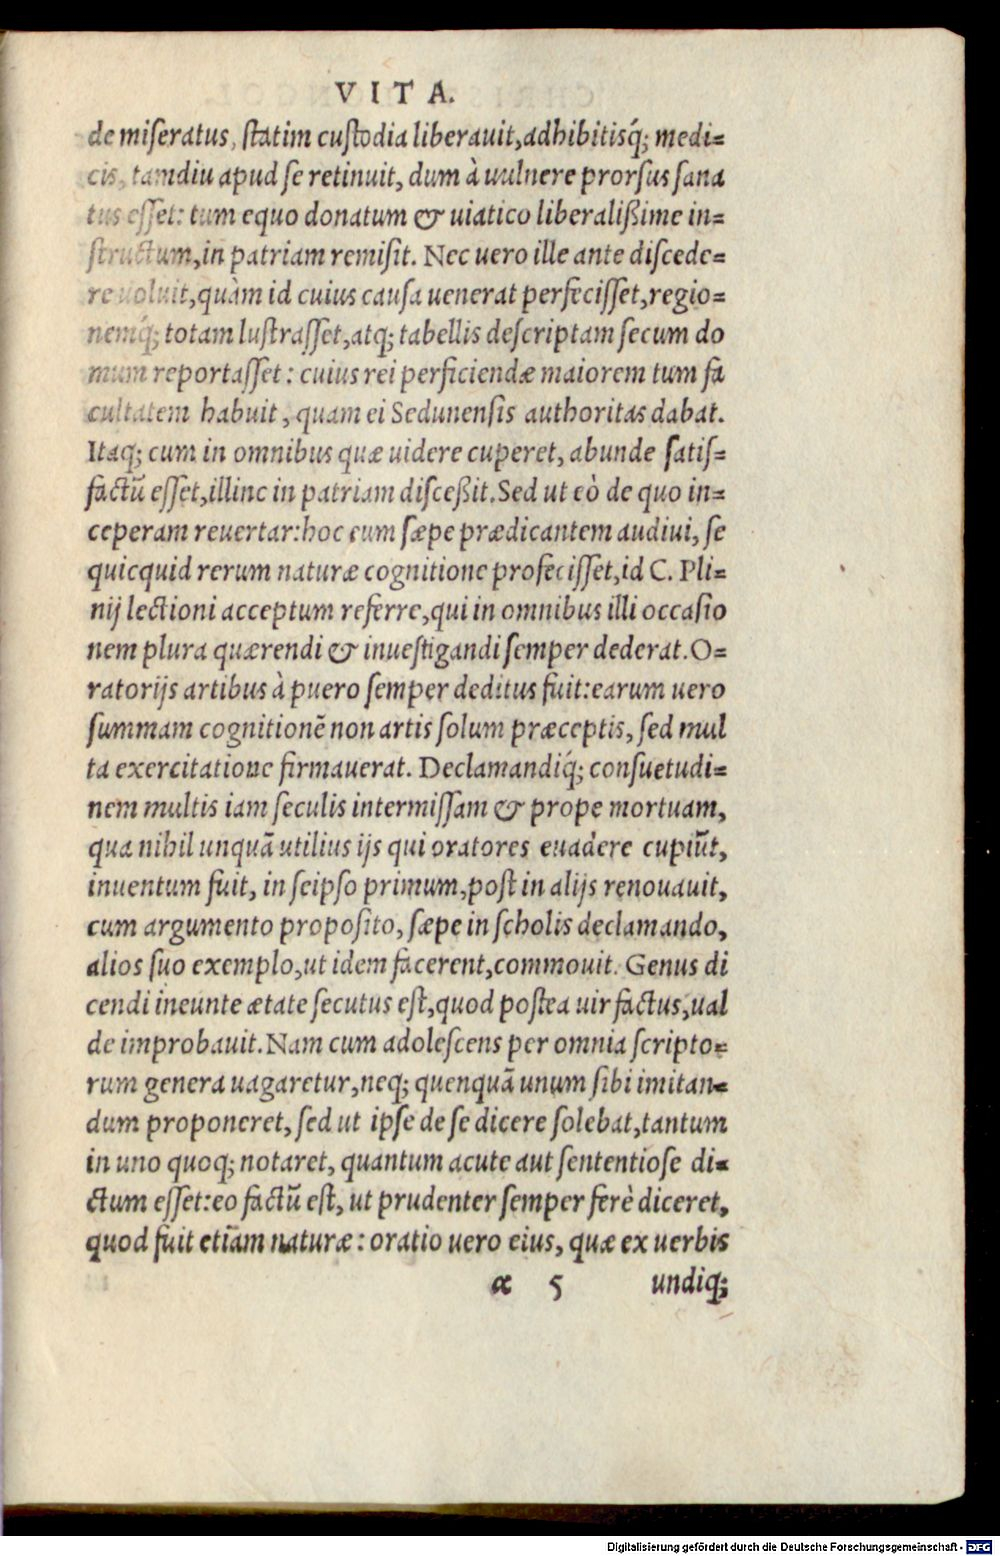 VITA.
de miseratus, statim custodia liberauit, adhibitisq́; medi=
cis, tamdiu apud se retinuit, dum à uulnere prorsus sana
tus esset: tum equo donatum & uiatico liberalißime in=
structum, in patriam remisit. Nec uero ille ante discede=
re uoluit, quàm id cuius causa uenerat perfecisset, regio=
nemq́; totam lustrasset, atq; tabellis descriptam secum do
mum reportasset: cuius rei perficiendæ maiorem tum fa
cultatem habuit, quam ei Sedunensis authoritas dabat.
Itaq; cum in omnibus quæ uidere cuperet, abunde satis=
factũ esset, illinc in patriam disceßit. Sed ut eò de quo in=
ceperam reuertar: hoc eum sæpe prædicantem audiui, se
quicquid rerum naturæ cognitione profecisset, id C. Pli=
nij lectioni acceptum referre, qui in omnibus illi occasio
nem plura quærendi & inuestigandi semper dederat. O=
ratorijs artibus à puero semper deditus fuit: earum uero
summam cognitionẽ non artis solum præceptis, sed mul
ta exercitatione firmauerat. Declamandiq́; consuetudi=
nem multis iam seculis intermissam & prope mortuam,
qua nihil unquã utilius ijs qui oratores euadere cupiũt,
inuentum fuit, in seipso primum, post in alijs renouauit,
cum argumento proposito, sæpe in scholis declamando,
alios suo exemplo, ut idem facerent, commouit. Genus di
cendi ineunte ætate secutus est, quod postea uir factus, ual
de improbauit. Nam cum adolescens per omnia scripto=
rum genera uagaretur, neq; quenquã unum sibi imitan=
dum proponeret, sed ut ipse de se dicere solebat, tantum
in uno quoq; notaret, quantum acute aut sententiose di=
ctum esset: eo factũ est, ut prudenter semper ferè diceret,
quod fuit etiam naturæ: oratio uero eius, quæ ex uerbis
α 5 undiq;
Digitalisierung gefördert durch die Deutsche Forschungsgemeinschaft - DFG